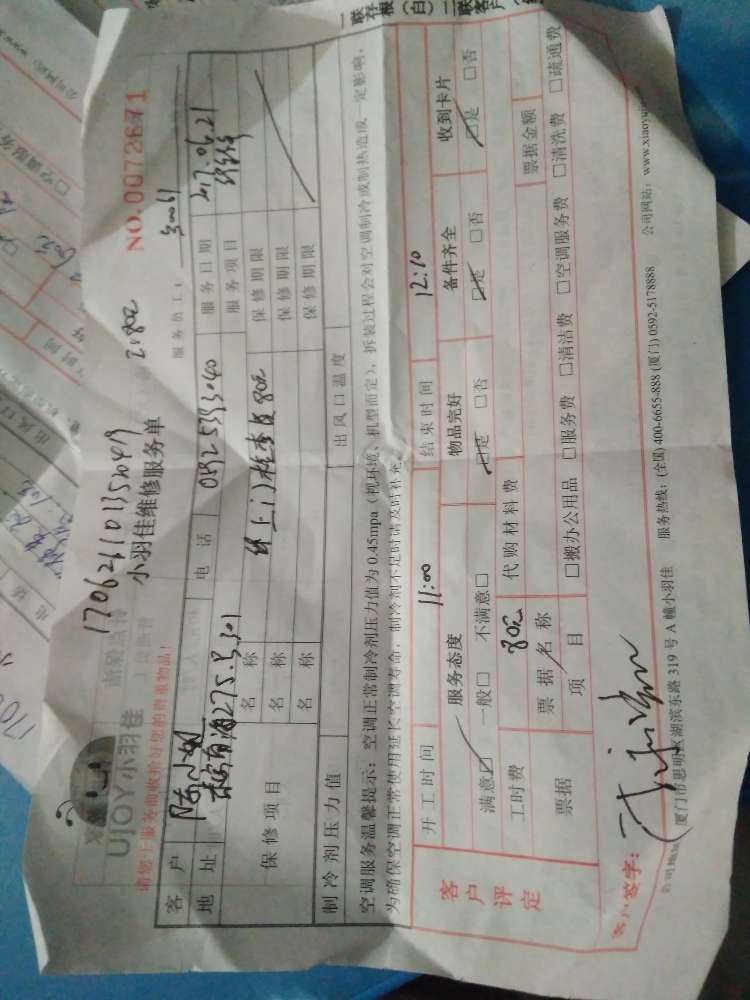 1706211013520419
UJOY小羽佳
小羽佳维修服务单
2180Z
NO.0072671
请您于服务前收拾好您的贵重物品!
服务员工:
客户
陈小姐
电话
服务日期
217.06.21
地址
服务项目
保修项目
名称
上门检查费80元
保修期限
名称
保修期限
名称
保修期限
制冷剂压力值
出风口温度
空调服务温馨提示:空调正常制冷剂压力值为0.45mpa(视环境、机型而定),拆装过程会对空调制冷或制热造成一定影响,
为确保空调正常使用延长空调寿命,制冷剂不足时请及时补充。
客户评定
开工时间
11:00
结束时间
12:10
服务态度
物品完好
备件齐全
收到卡片
满意□ 一般□ 不满意□
□是 □否
□是 □否
□是 □否
工时费
80元
代购材料费
票据
票据名称
票据金额
项目
□搬办公用品 □服务费 □清洁费 □空调服务费 □清洗费 □疏通费
客户签字:
公司地址:厦门市思明区湖滨东路319号A幢小羽佳
服务热线:(全国) 400-6655-888 (厦门) 0592-5178888
公司网站:www.xiaoyu